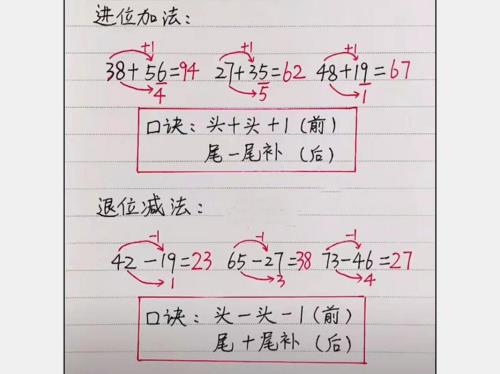 进位加法：
+1 +1 +1
38+56=94 27+35=62 48+19=67
4 5 1
口诀：头+头+1（前）
尾-尾补（后）
退位减法：
-1 -1 -1
42-19=23 65-27=38 73-46=27
1 3 4
口诀：头-头-1（前）
尾+尾补（后）